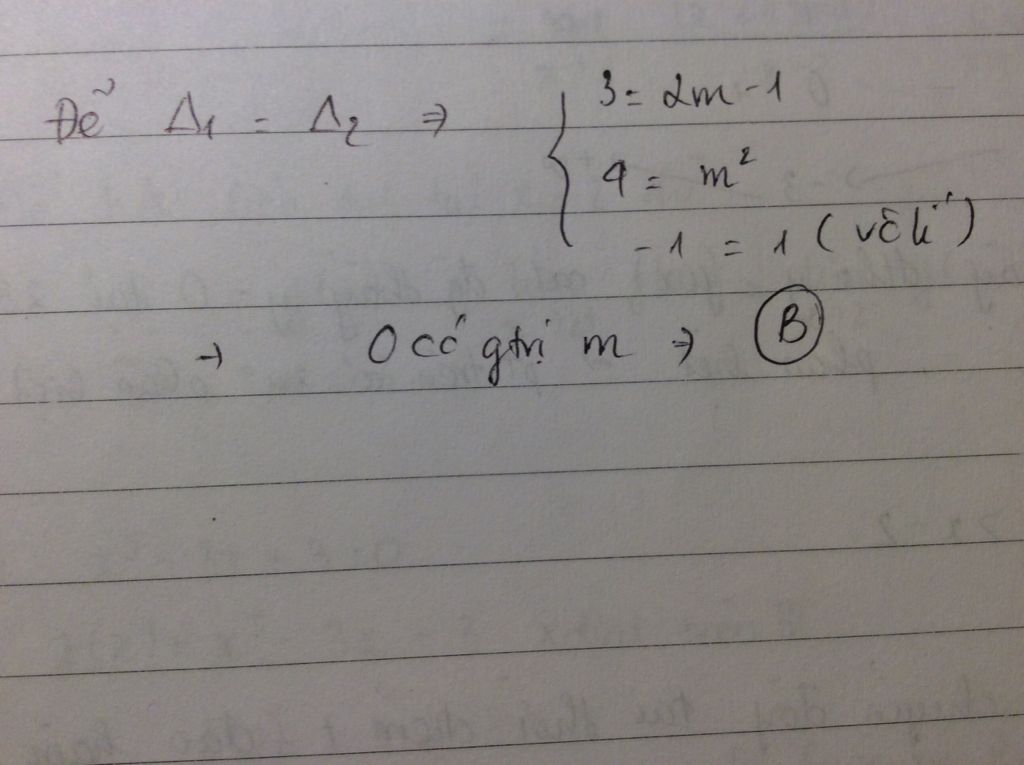 Để Δ1 = Δ2 => { 3 = 2m - 1
4 = m²
-1 = 1 (vô lí)
→ 0 có gtrị m => B